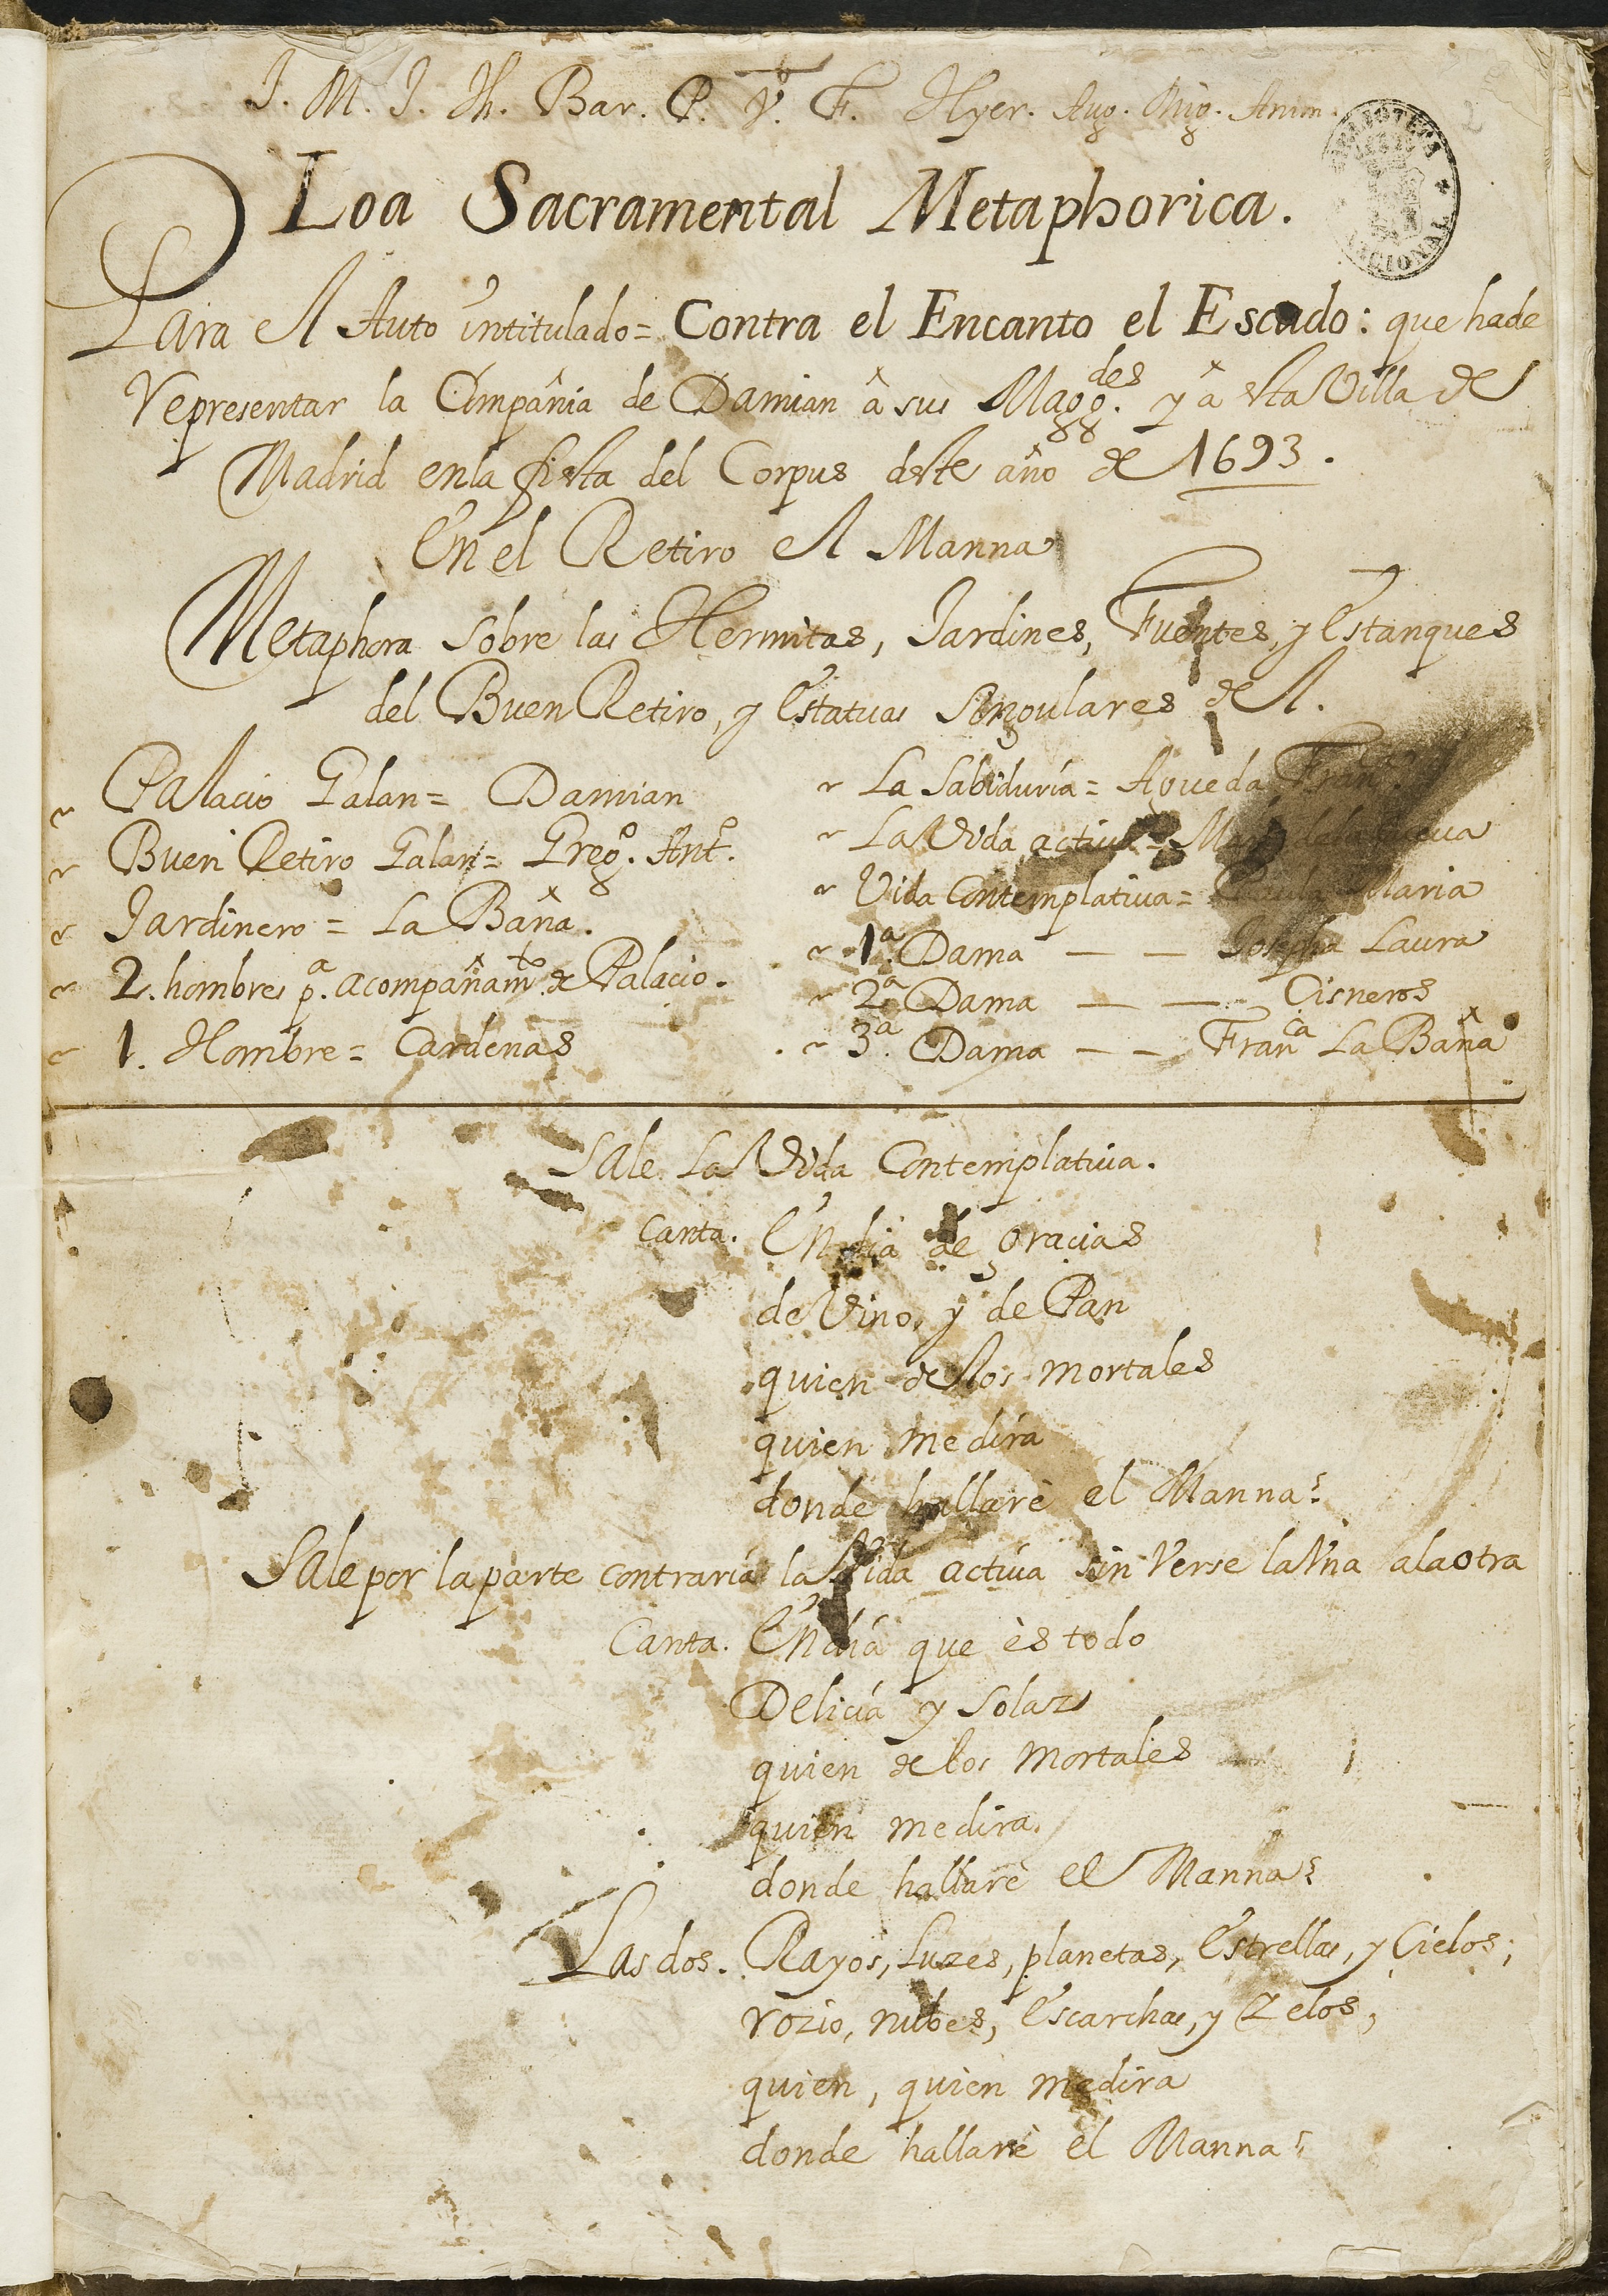 J. M. J. Jh. Bar. P. V. F. Hyer. Aug. Mig. Anim.
2
BIBLIOTECA NACIONAL
Loa Sacramental Metaphorica.
Para el Auto intitulado = Contra el Encanto el Escudo: que hade
representar la Compañia de Damian â sus Magg.des y â esta Villa de
Madrid enla fiesta del Corpus deste año de 1693.
En el Retiro el Manna
Metaphora sobre las Hermitas, Jardines, Fuentes, y Estanques
del Buen Retiro, y Estatuas Singulares de el.
Palacio Galan = Damian
Buen Retiro Galan = Greg.o Ant.o
Jardinero = La Baña.
2. hombres p.a acompañam.to de Palacio.
1. Hombre = Cardenas
La Sabiduría = Agueda Fran.ca
La Vida activa = Maria de la Cueva
Vida Contemplativa = Paula Maria
1.a Dama — — Josepha Laura
2.a Dama — — Cisneros
3.a Dama — — Fran.ca La Baña
Sale La Vida Contemplatiua.
Canta. En dia de gracias
de Vino, y de Pan
quien de los mortales
quien me dira
donde hallarè el Manna?
Sale por la parte contraria la Vida actiua sin Verse la Vna ala otra
Canta. En dia que ès todo
Delicia y Solaz
quien de los mortales
quien me dira
donde hallarè el Manna?
Las dos. Rayos, Luzes, planetas, Estrellas, y Cielos;
rozio, nubes, Escarchas, y Zelos,
quien, quien me dira
donde hallarè el Manna?